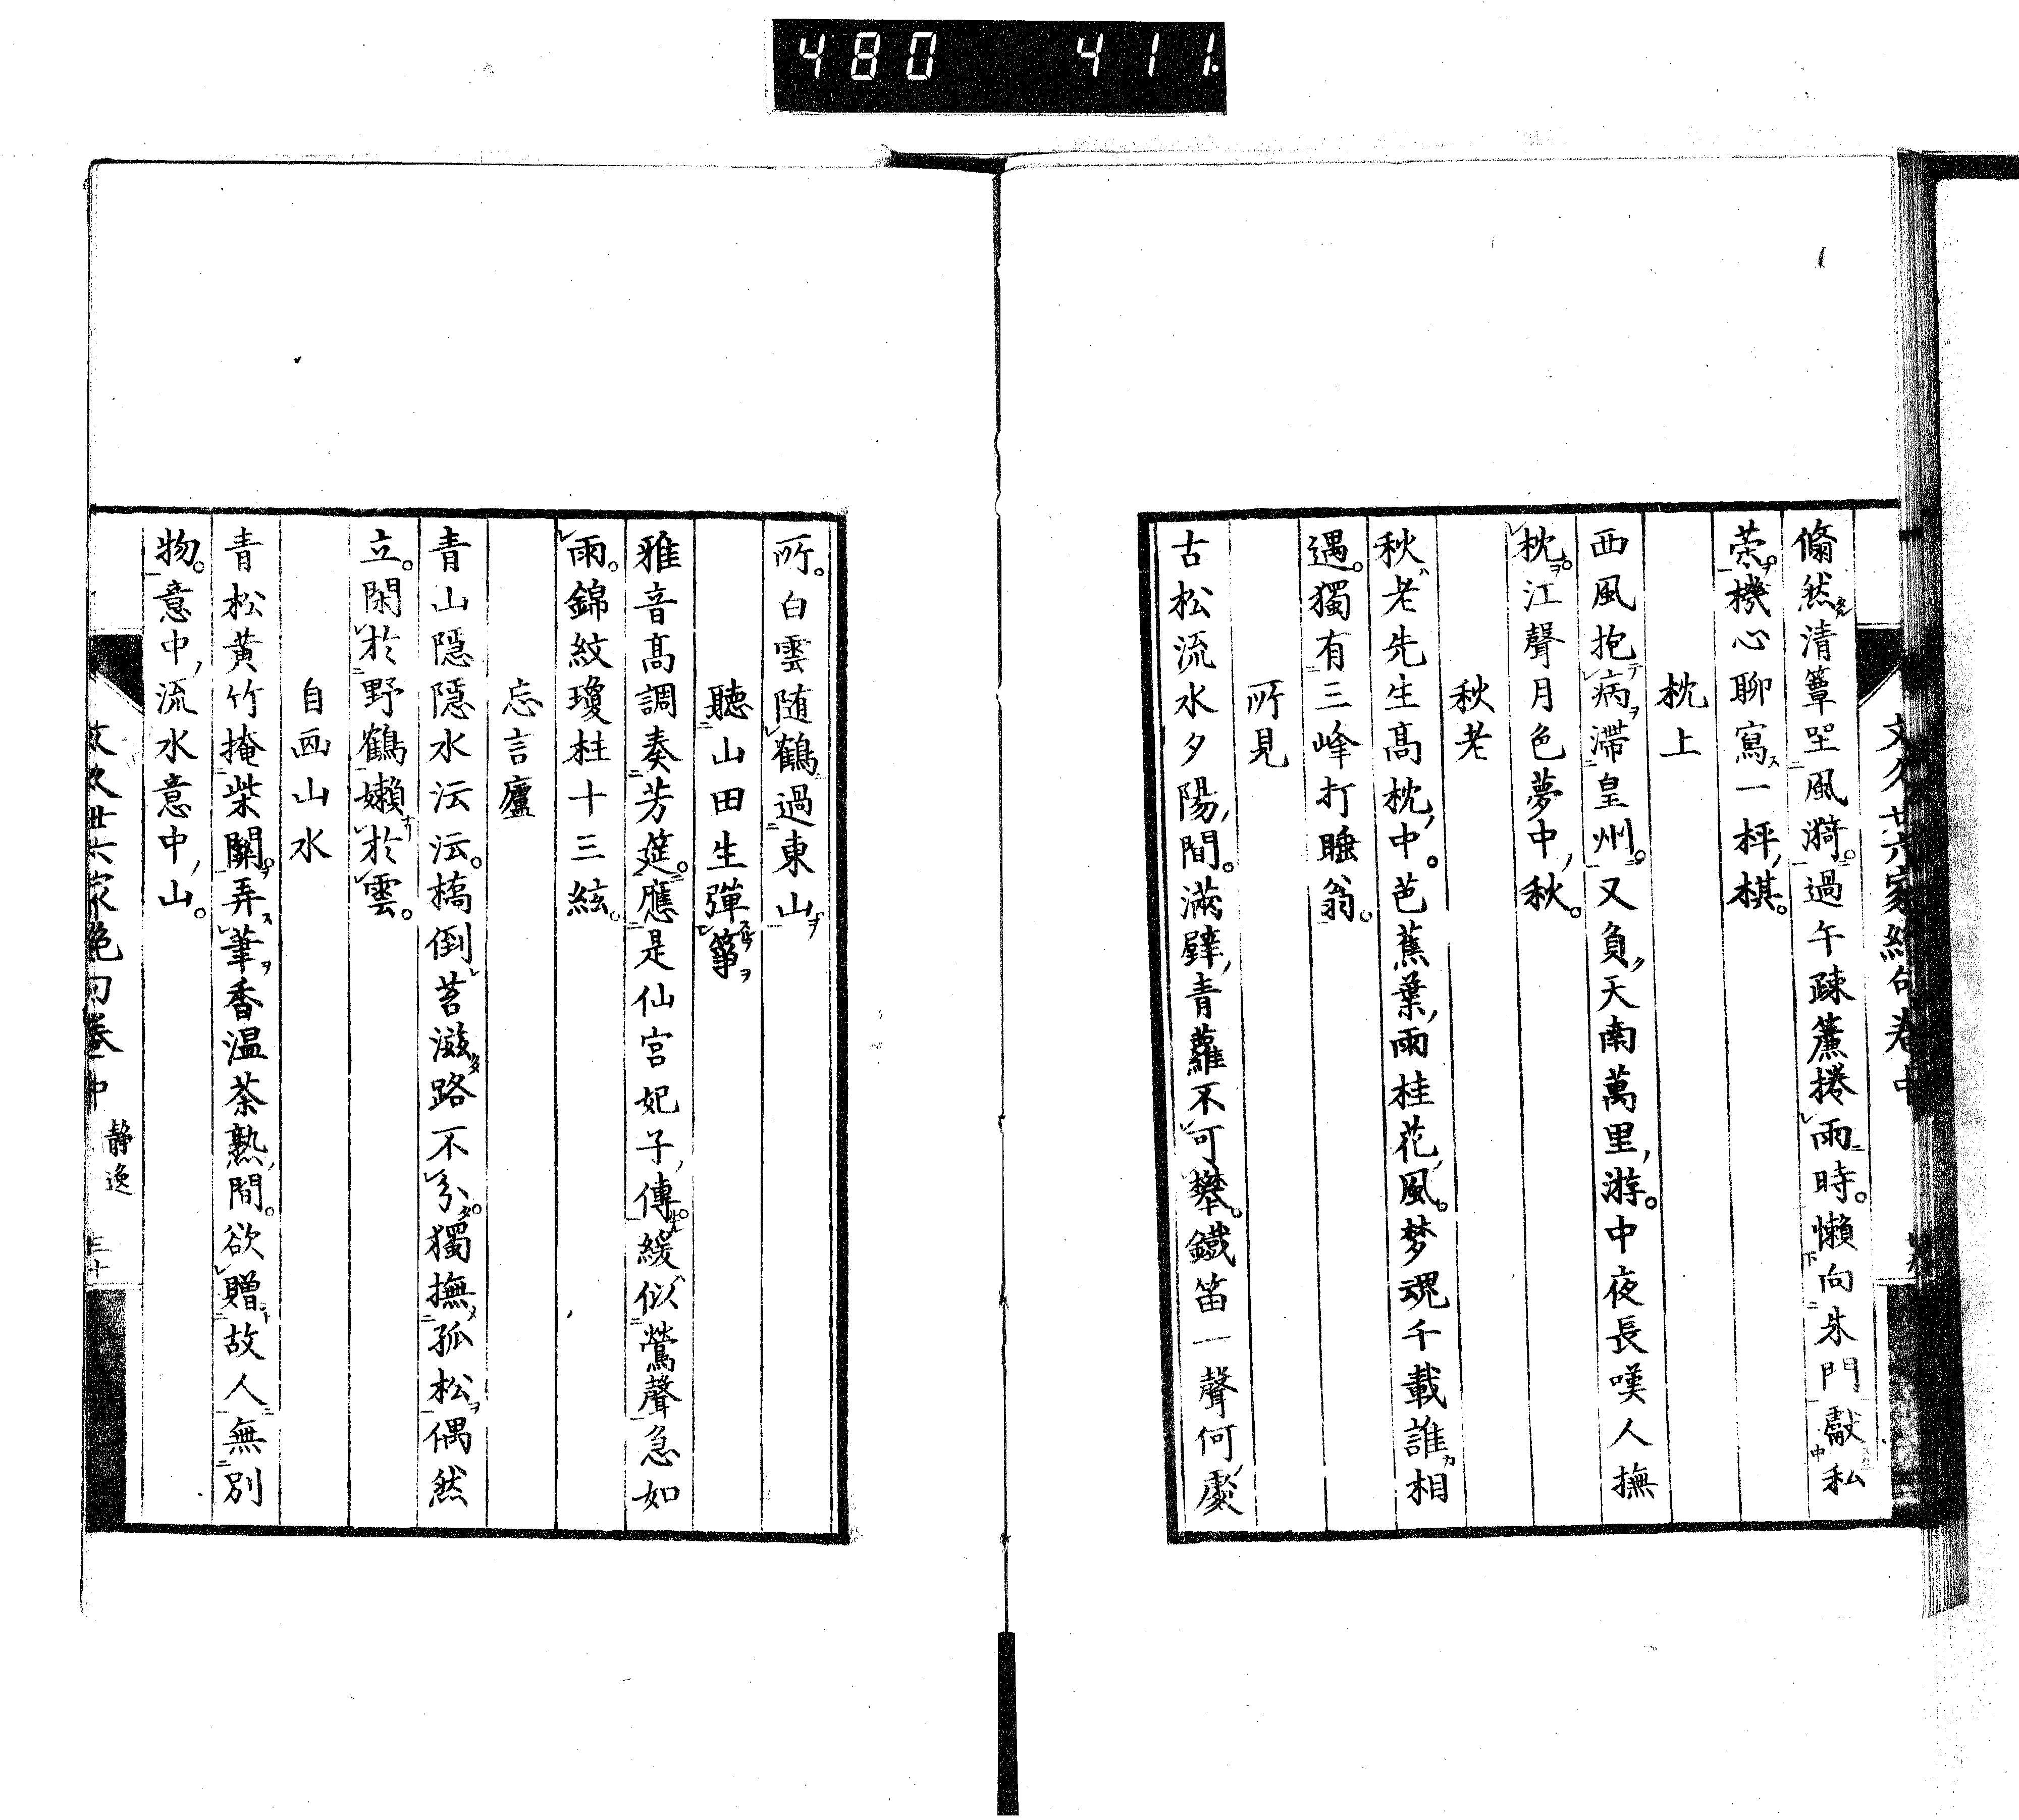 480 411
文久廿六家絶句卷中
翛然清簟坐風漪。過午疎簾捲雨時。懶向朱門獻私
榮。機心聊寫一枰棋。
枕上
西風抱病滯皇州。又負天南萬里游。中夜長嘆人撫
枕。江聲月色夢中秋。
秋老
秋老先生高枕中。芭蕉葉雨桂花風。梦魂千載誰相
遇。獨有三峰打睡翁。
所見
古松流水夕陽間。滿壁青蘿不可攀。鐵笛一聲何處
所。白雲随鶴過東山
聽山田生彈箏
雅音高調奏芳筵。應是仙宮妃子傳。緩似鶯聲急如
雨。錦紋瓊柱十三絃。
忘言廬
青山隱隱水沄沄。橋倒苔滋路不分。獨撫孤松偶然
立。閑於野鶴嬾於雲。
自画山水
青松黃竹掩柴關。弄筆香温茶熟間。欲贈故人無別
物。意中流水意中山。
文久廿六家絶句卷中 靜逸 三十